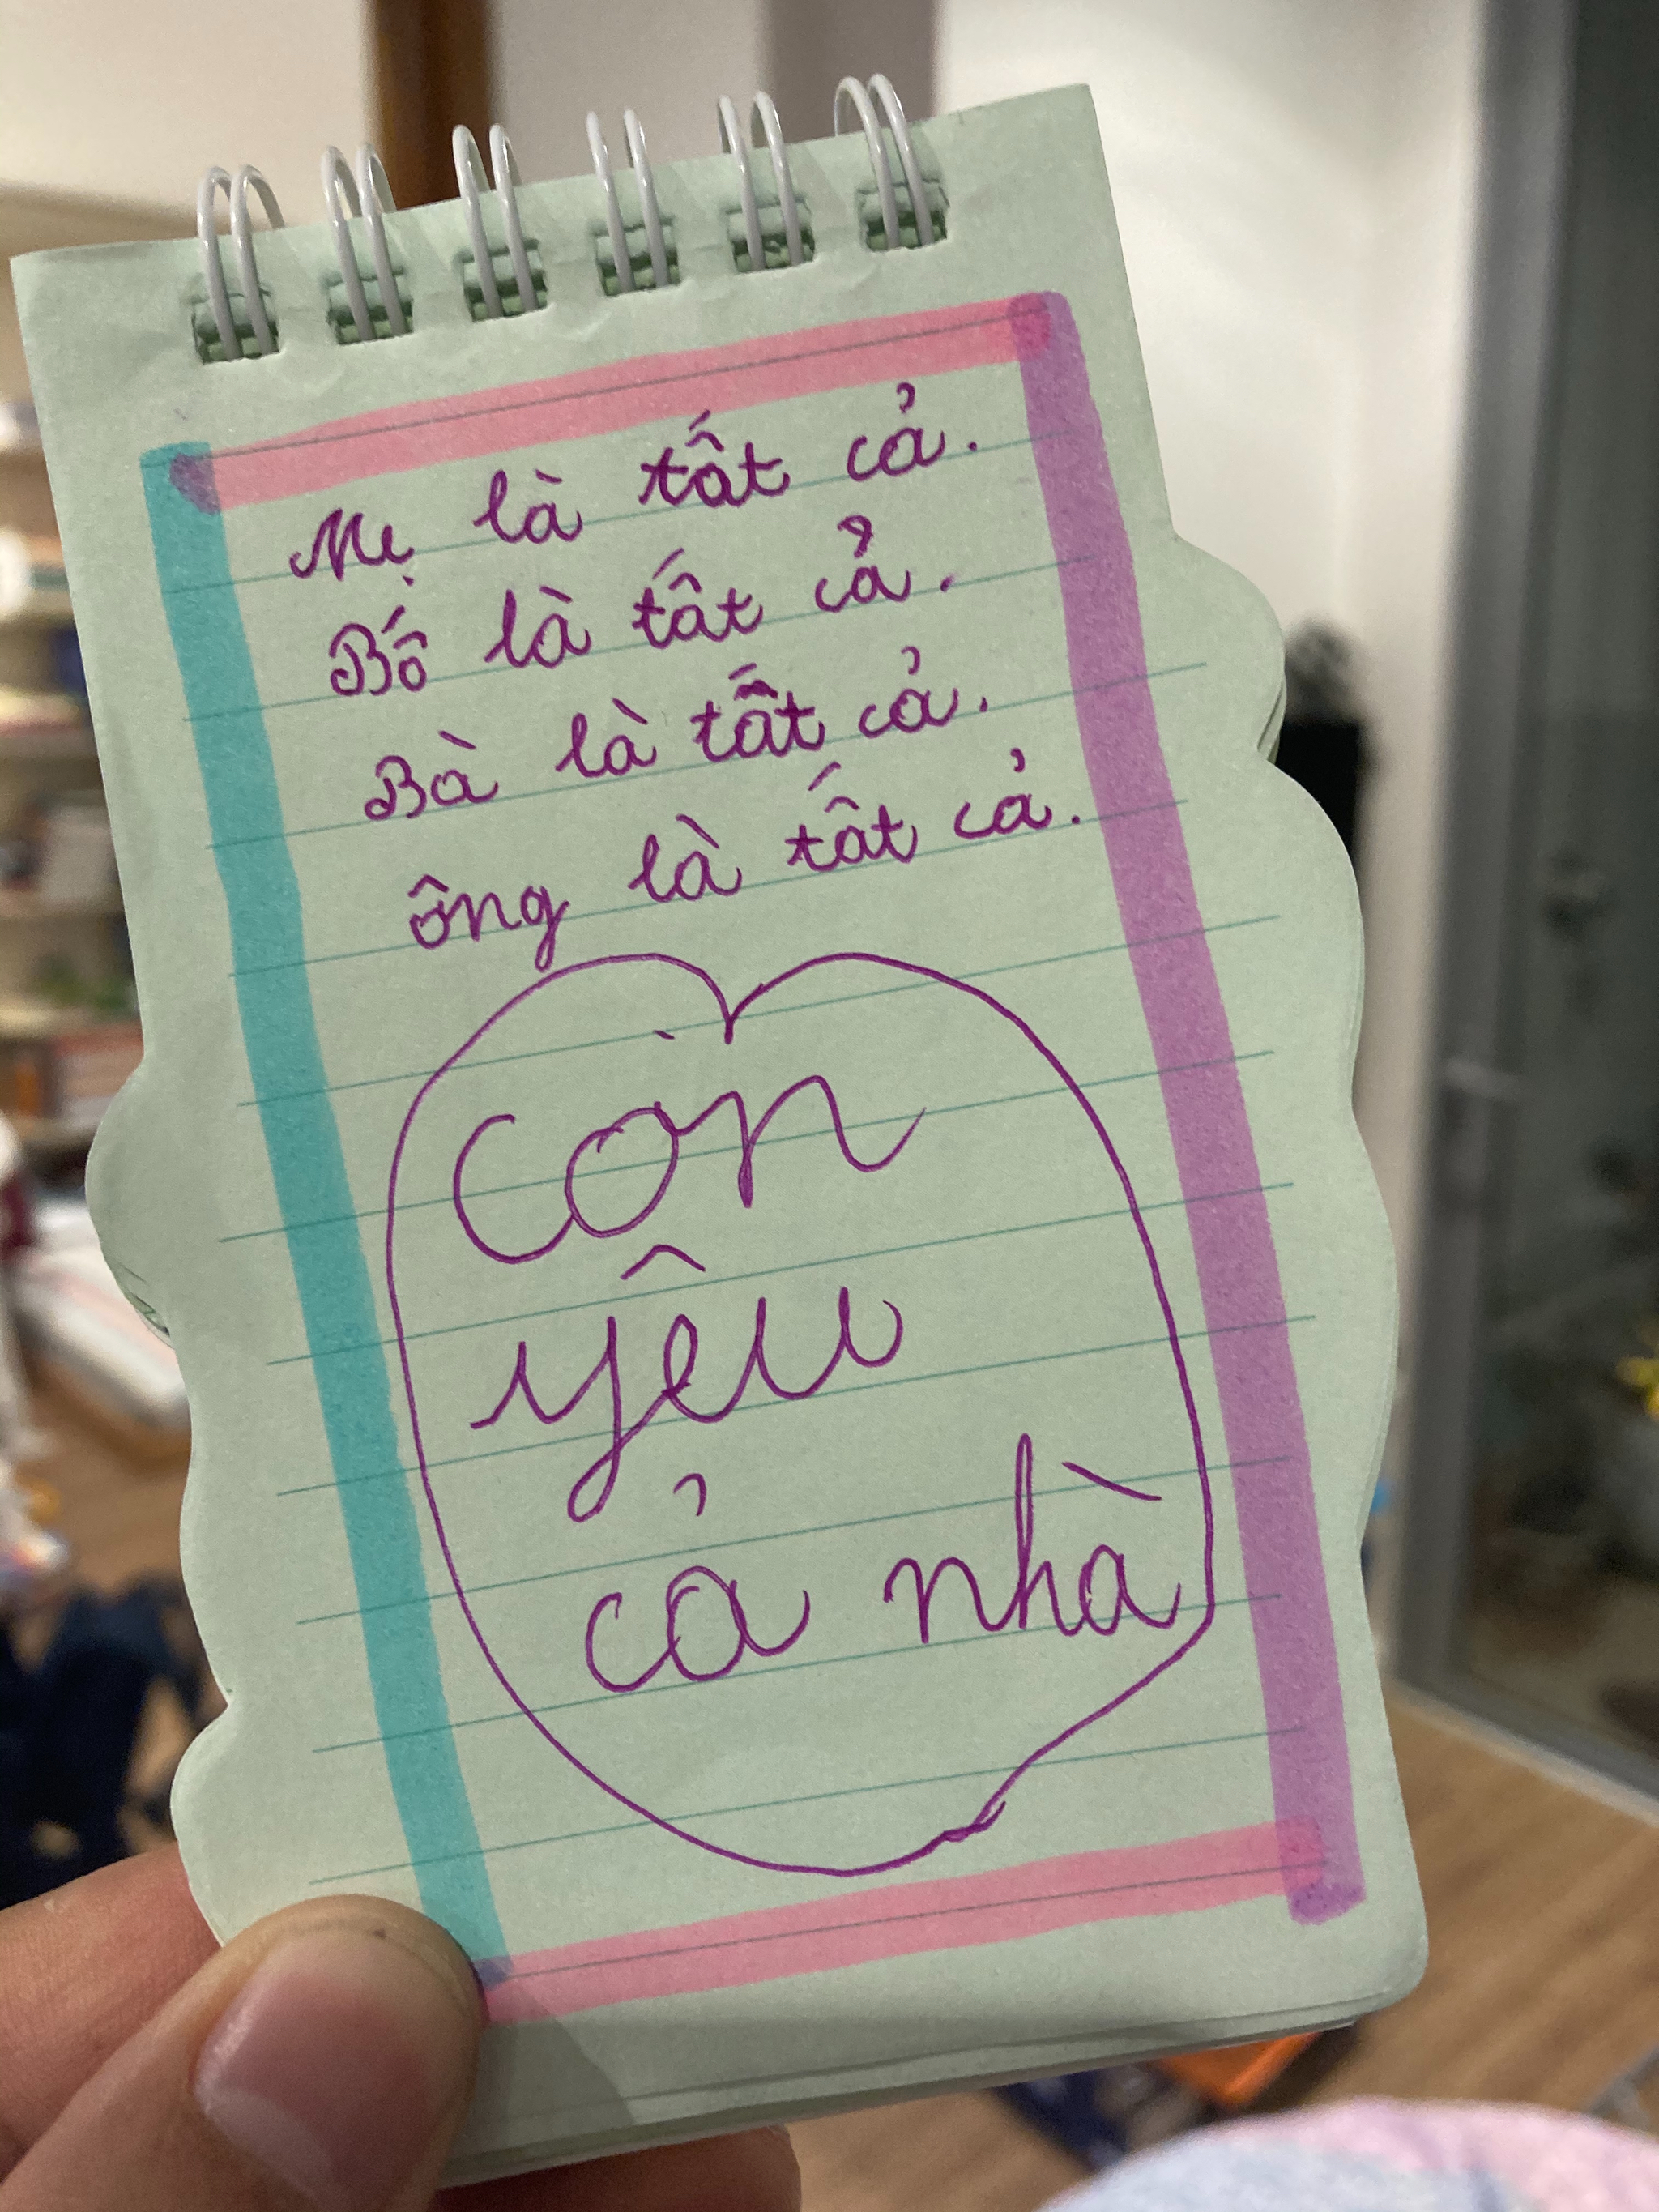 Mẹ là tất cả.
Bố là tất cả.
Bà là tất cả.
ông là tất cả.
Còn
yêu
cả nhà